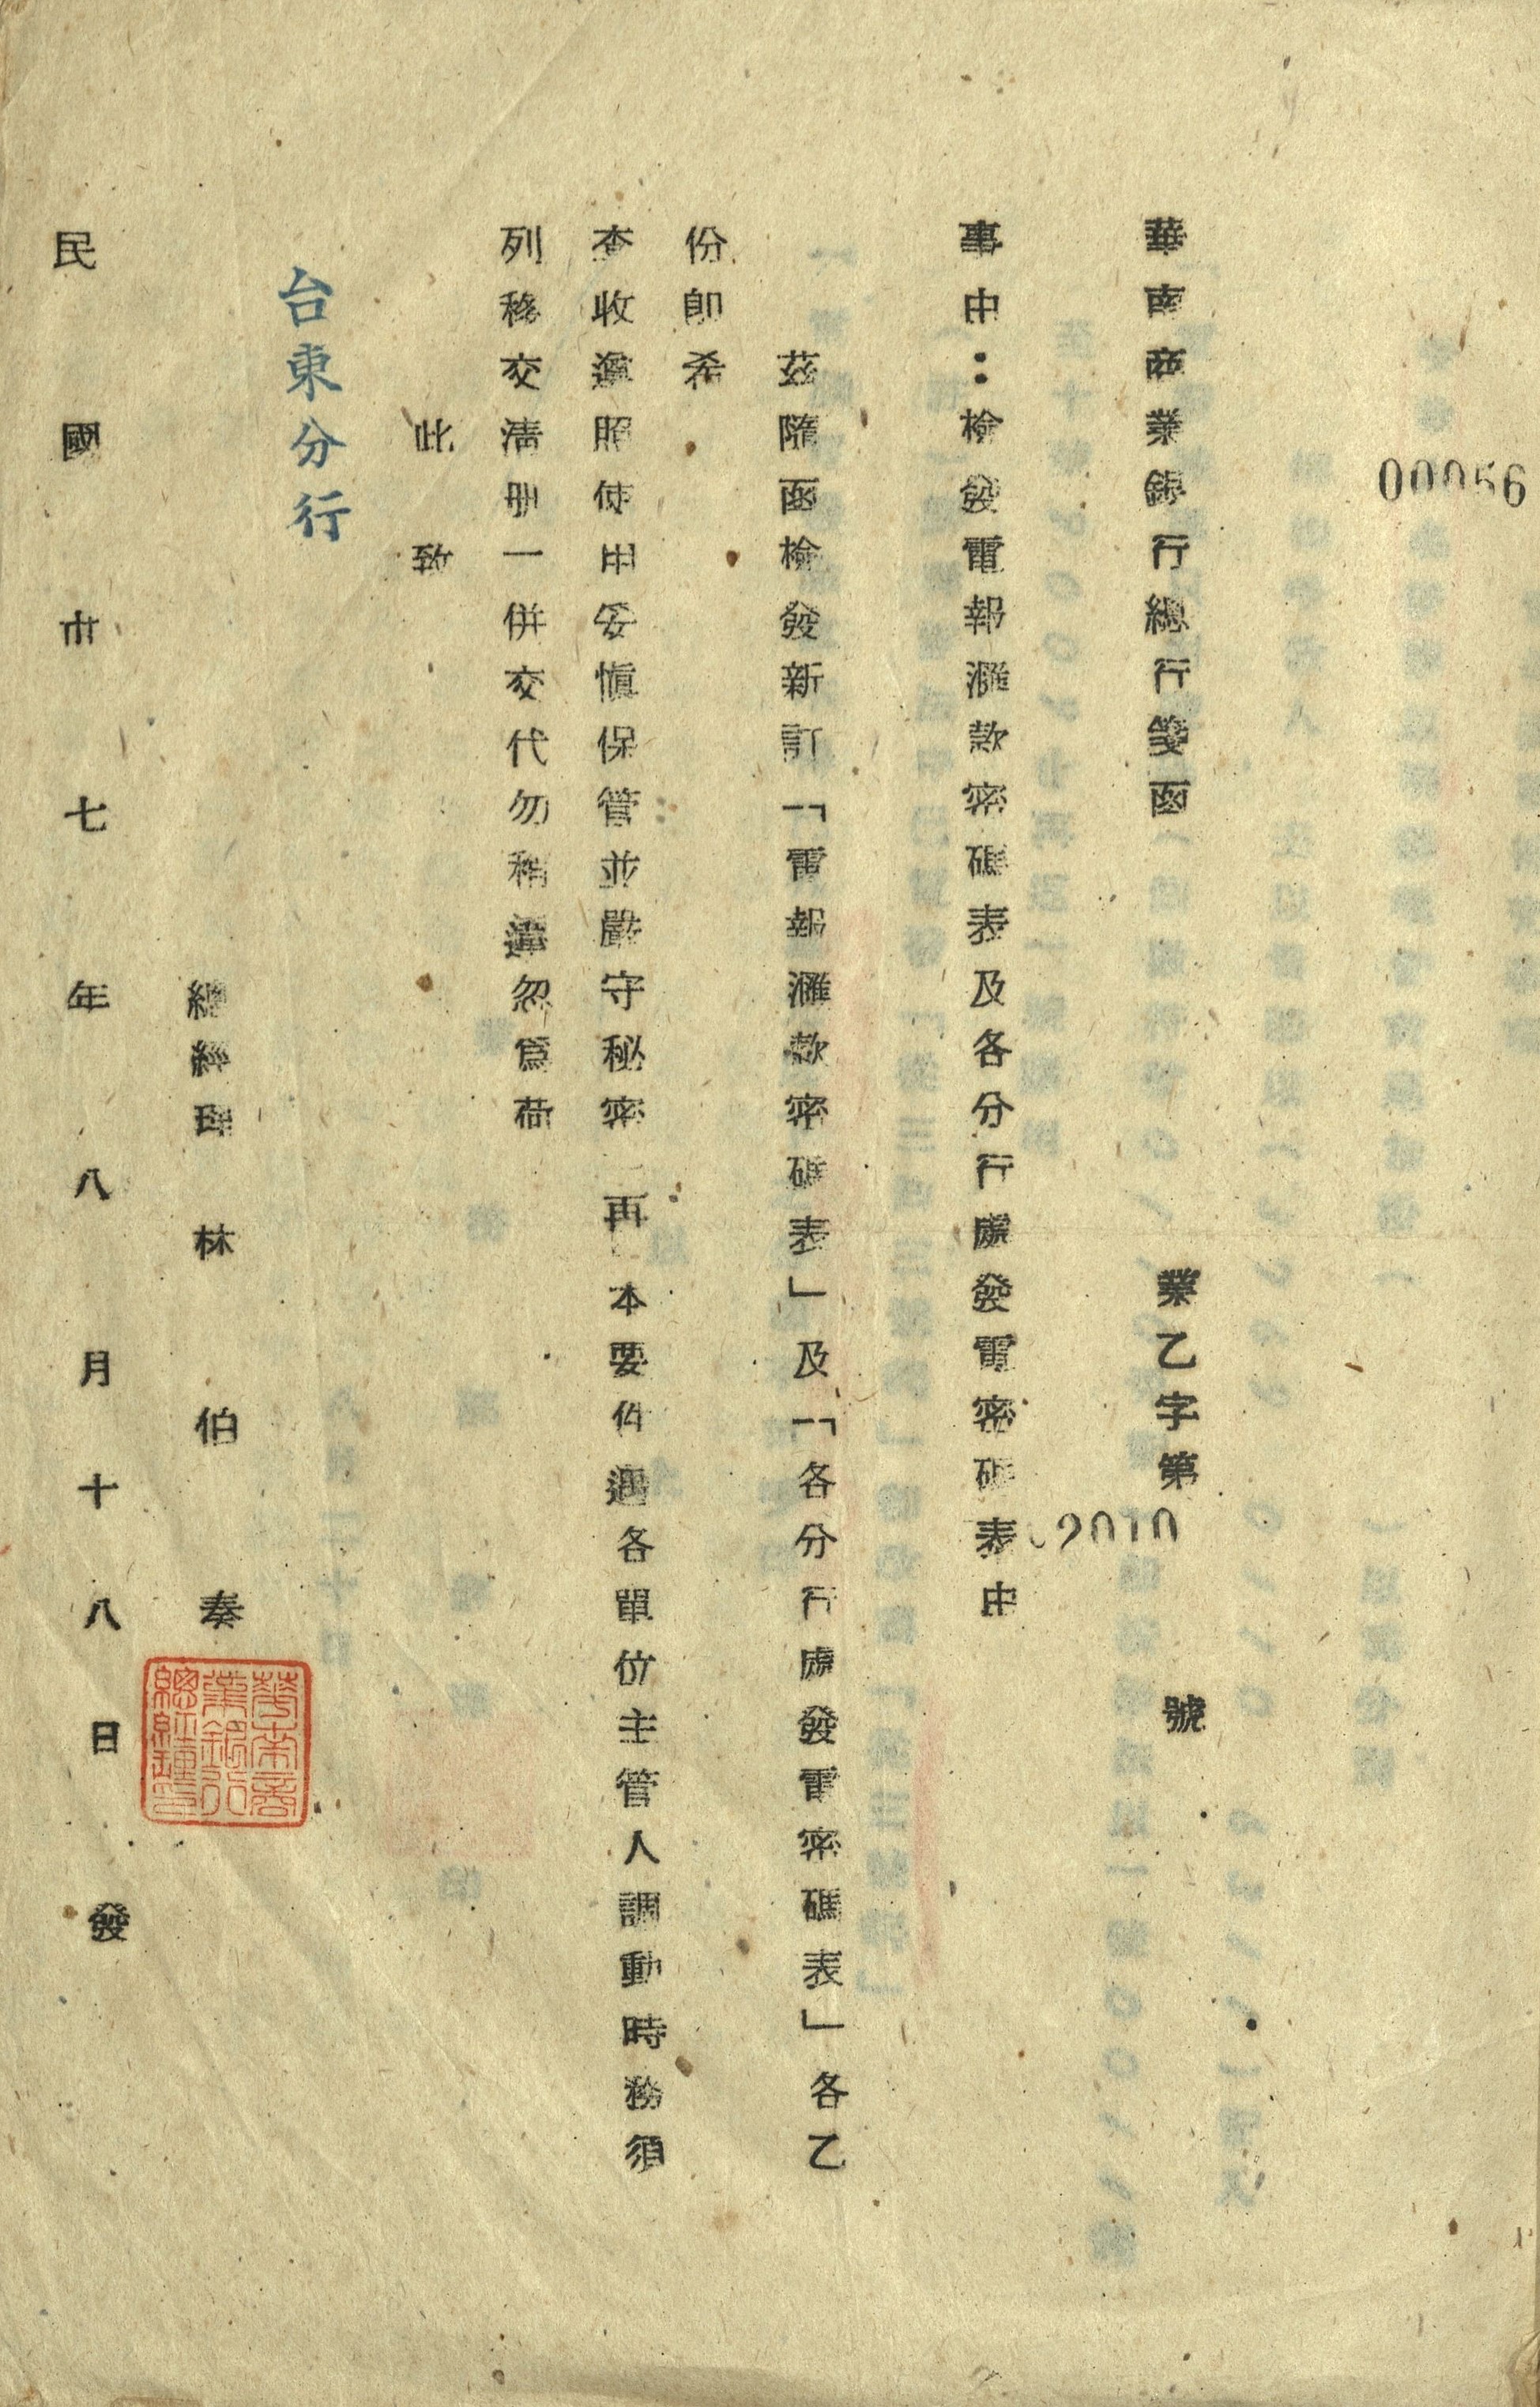 00056
華南商業銀行總行箋函　業乙字第 2010 號
事由：檢發電報滙款密碼表及各分行處發電密碼表由
茲隨函檢發新訂「電報滙款密碼表」及「各分行處發電密碼表」各乙
份卽希
查收遵照使用妥愼保管並嚴守秘密　再本要件遇各單位主管人調動時務須
列移交淸册一併交代勿稍違忽爲荷
此致
台東分行
總經理　林伯奏
華南商業銀行總經理印
民國卅七年八月十八日發